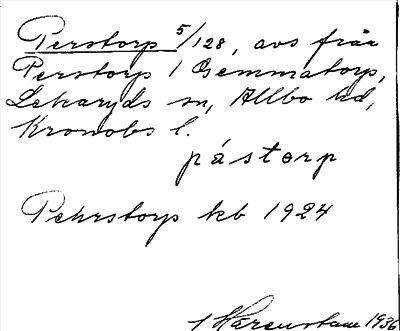 Perstorp 5/128, avs från
Perstorp 1 Gemmatorp,
Lekaryds sn, Allbo hd,
Kronobs l.
pástorp
Pehrstorp kb 1924
1936